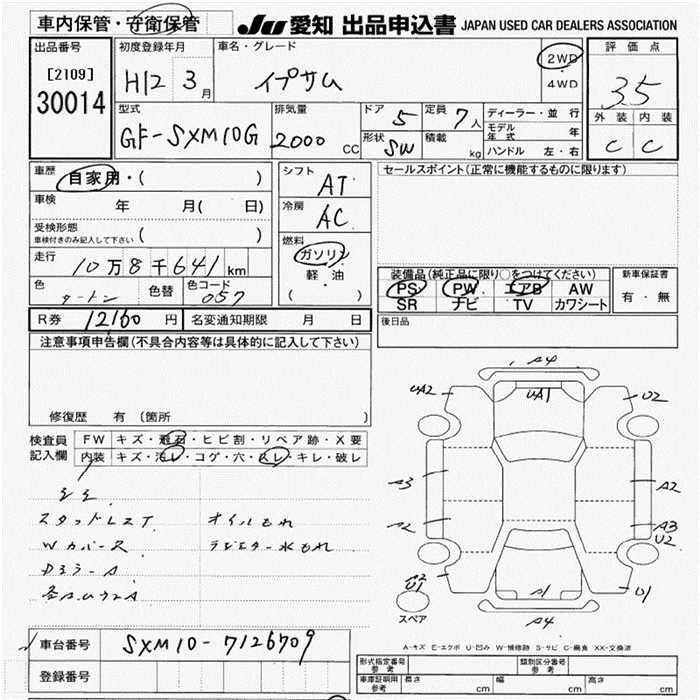 車内保管・守衛保管
JU 愛知 出品申込書 JAPAN USED CAR DEALERS ASSOCIATION
出品番号
[2109]
30014
初度登録年月
H12 3月
車名・グレード
イプサム
2WD
4WD
評価点
3.5
外装 内装
C C
型式
GF-SXM10G
排気量
2000 CC
ドア 5
定員 7人
形状 SW
積載 kg
ディーラー・並行
モデル年式 年
ハンドル 左・右
車歴
自家用・( )
車検
年 月( 日)
受検形態
車検付きのみ記入して下さい ( )
走行
10万8千641km
色
ツートン
色替
色コード
057
シフト
AT
冷房
AC
燃料
ガソリン
軽油
( ・ )
セールスポイント(正常に機能するものに限ります)
装備品(純正品に限り〇をつけてください)
PS PW エアB AW
SR ナビ TV カワシート
新車保証書
有・無
後日品
R券 12160 円
名変通知期限 月 日
注意事項申告欄(不具合内容等は具体的に記入して下さい)
修復歴 有(箇所 )
検査員
記入欄
FW キズ・飛石・ヒビ割・リペア跡・X要
内装 キズ・汚レ・コゲ・穴・スレ・キレ・破レ
スタッドレスT
オイルもれ
Wカバース
ラジエター水もれ
DミラーA
A4
UA2
UA1
U2
A3
A2
A2
A3
U2
A2
U1
A1
U1
A4
スペア
A-キズ E-エクボ U-凹み W-補修跡 S-サビ C-腐食 XX-交換済
車台番号
SXM10-7126709
登録番号
形式指定番号
参考
類別区分番号
参考
車庫証明用
参考
長さ cm
幅 cm
高さ cm